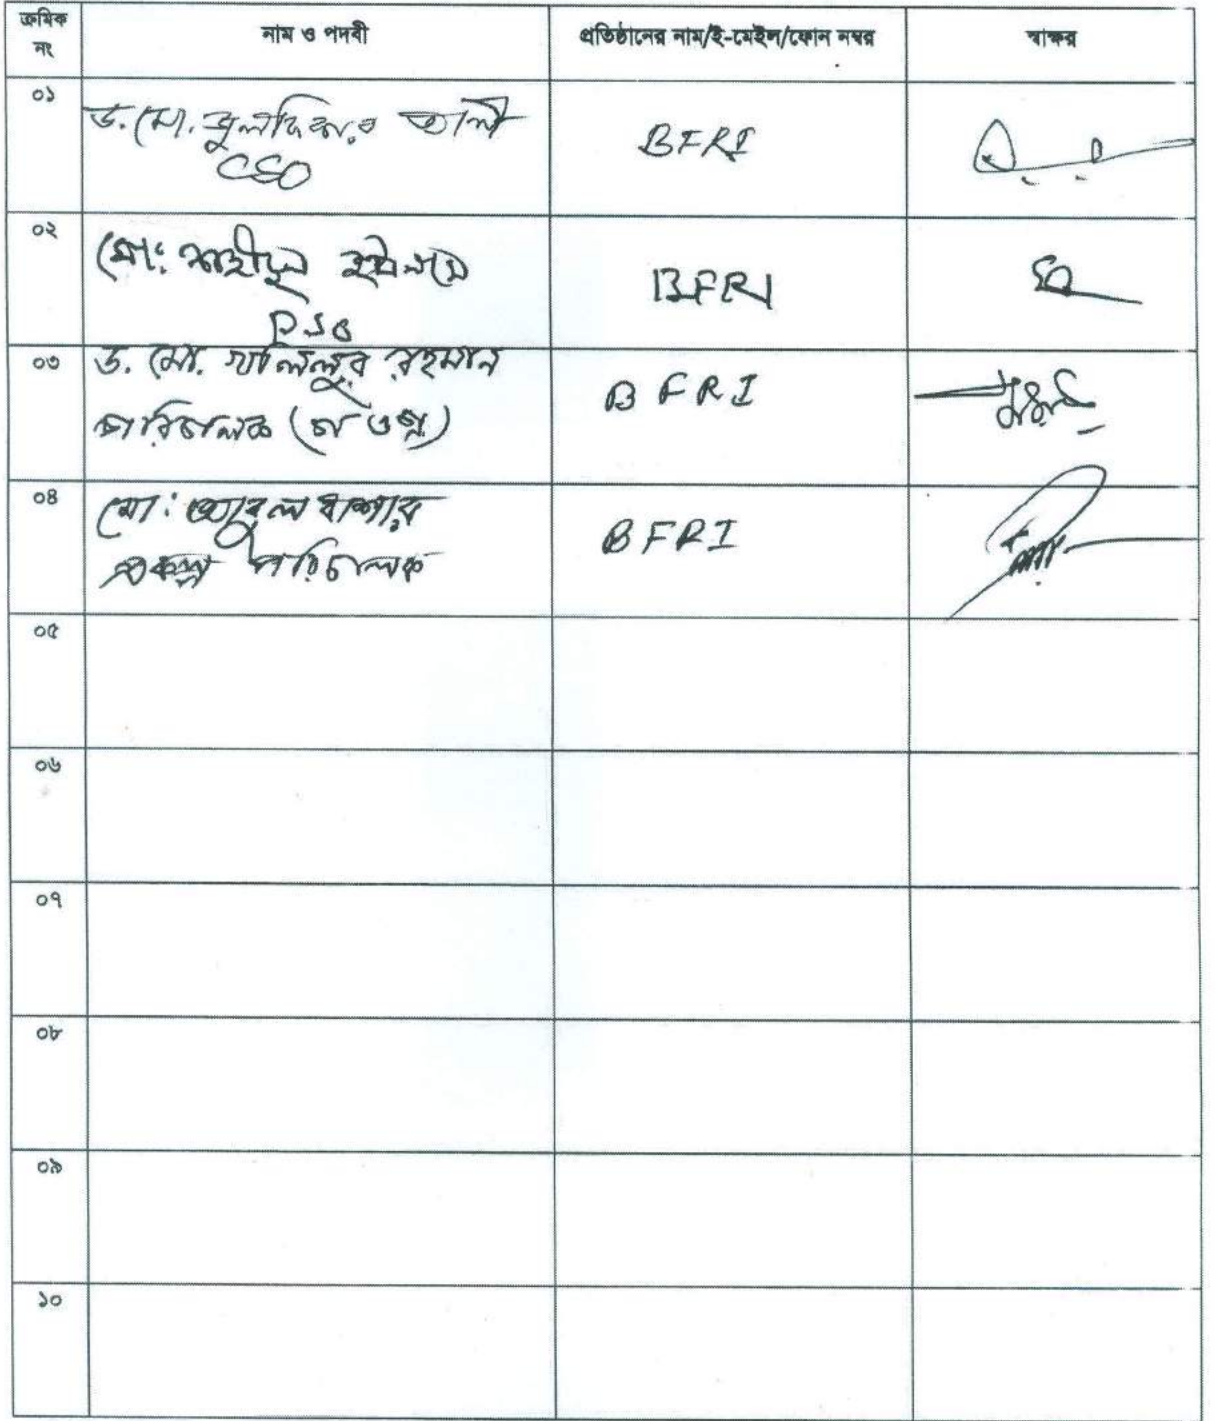 ক্রমিক নং
নাম ও পদবী
প্রতিষ্ঠানের নাম/ই-মেইল/ফোন নম্বর
স্বাক্ষর
০১
ড. মো. জুলফিকার আলী
CSO
BFRI
০২
মো: শহীদুল ইসলাম
PSO
BFRI
০৩
ড. মো. খলিলুর রহমান
পরিচালক
BFRI
০৪
মো: আবুল বাশার
প্রকল্প পরিচালক
BFRI
০৫
০৬
০৭
০৮
০৯
১০